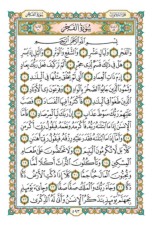 سورة الفجر
بسم الله الرحمن الرحيم
والفجر وليال عشر والشفع والوتر واليل إذا يسر
هل في ذلك قسم لذي حجر ألم تر كيف فعل ربك بعاد
إرم ذات العماد التي لم يخلق مثلها في البلد
وثمود الذين جابوا الصخر بالواد وفرعون ذي الأوتاد
الذين طغوا في البلد فأكثروا فيها الفساد فصب
عليهم ربك سوط عذاب إن ربك لبالمرصاد فأما
الإنسن إذا ما ابتلىه ربه فأكرمه ونعمه فيقول ربي
أكرمن وأما إذا ما ابتلىه فقدر عليه رزقه فيقول ربي أهنن
كلا بل لا تكرمون اليتيم ولا تحضون على طعام
المسكين وتأكلون التراث أكلا لما
وتحبون المال حبا جما كلا إذا دكت الأرض دكا
دكا وجاء ربك والملك صفا صفا وجايء يومئذ
بجهنم يومئذ يتذكر الإنسن وأنى له الذكرى
٥٩٣